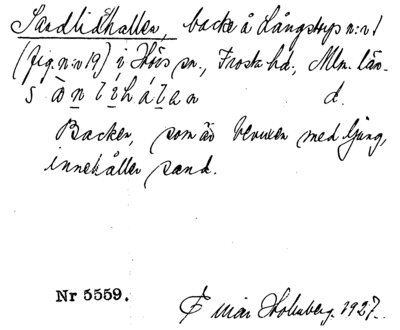 Sandlidhallen, backe å Långstrup n:r 1
(fig. n:r 19) i Höörs sn., Frosta hd., Mlm. län.
d.
Backen, som är bevuxen med ljung,
innehåller sand.
Nr 5559.
Einar Holmberg. 1927.